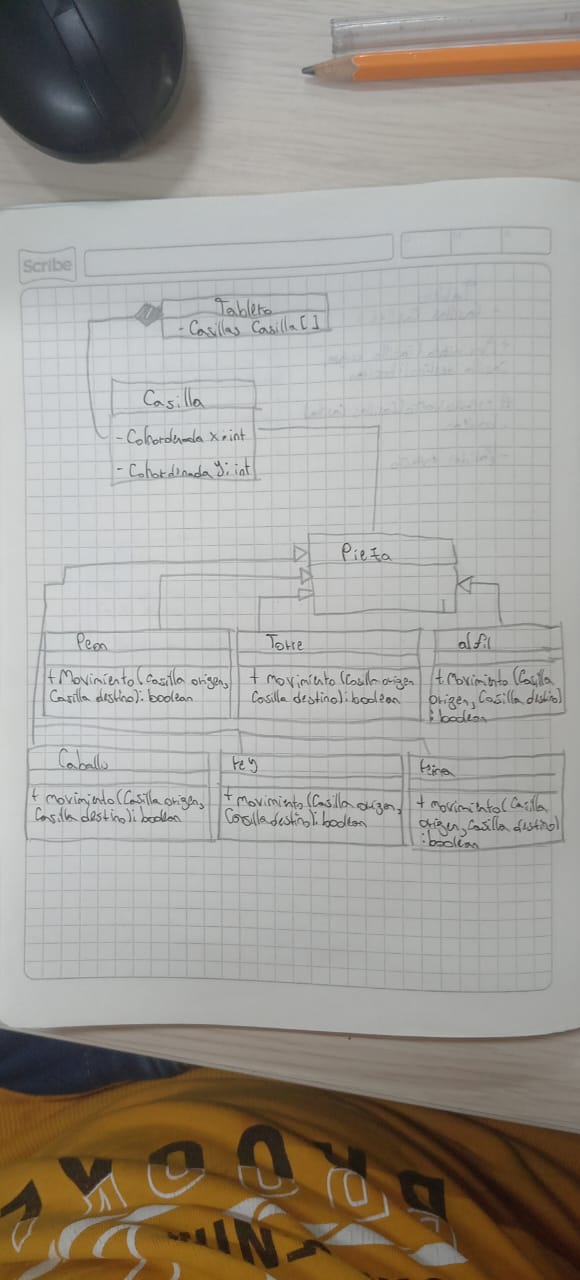 Scribe
Tablero
- Casillas Casilla[]
Casilla
- Cohordenada x: int
- Cohordinada y: int
Pieza
Peon
+ Movimiento (Casilla origen,
Casilla destino): boolean
Torre
+ movimiento (Casilla origen
Casilla destino): boolean
alfil
+ Movimiento (Casilla
origen, Casilla destino)
: boolean
Caballo
+ movimiento (Casilla origen,
Casilla destino): boolean
rey
+ movimiento (Casilla origen,
Casilla destino): boolean
reina
+ movimiento (Casilla
origen, Casilla destino)
: boolean